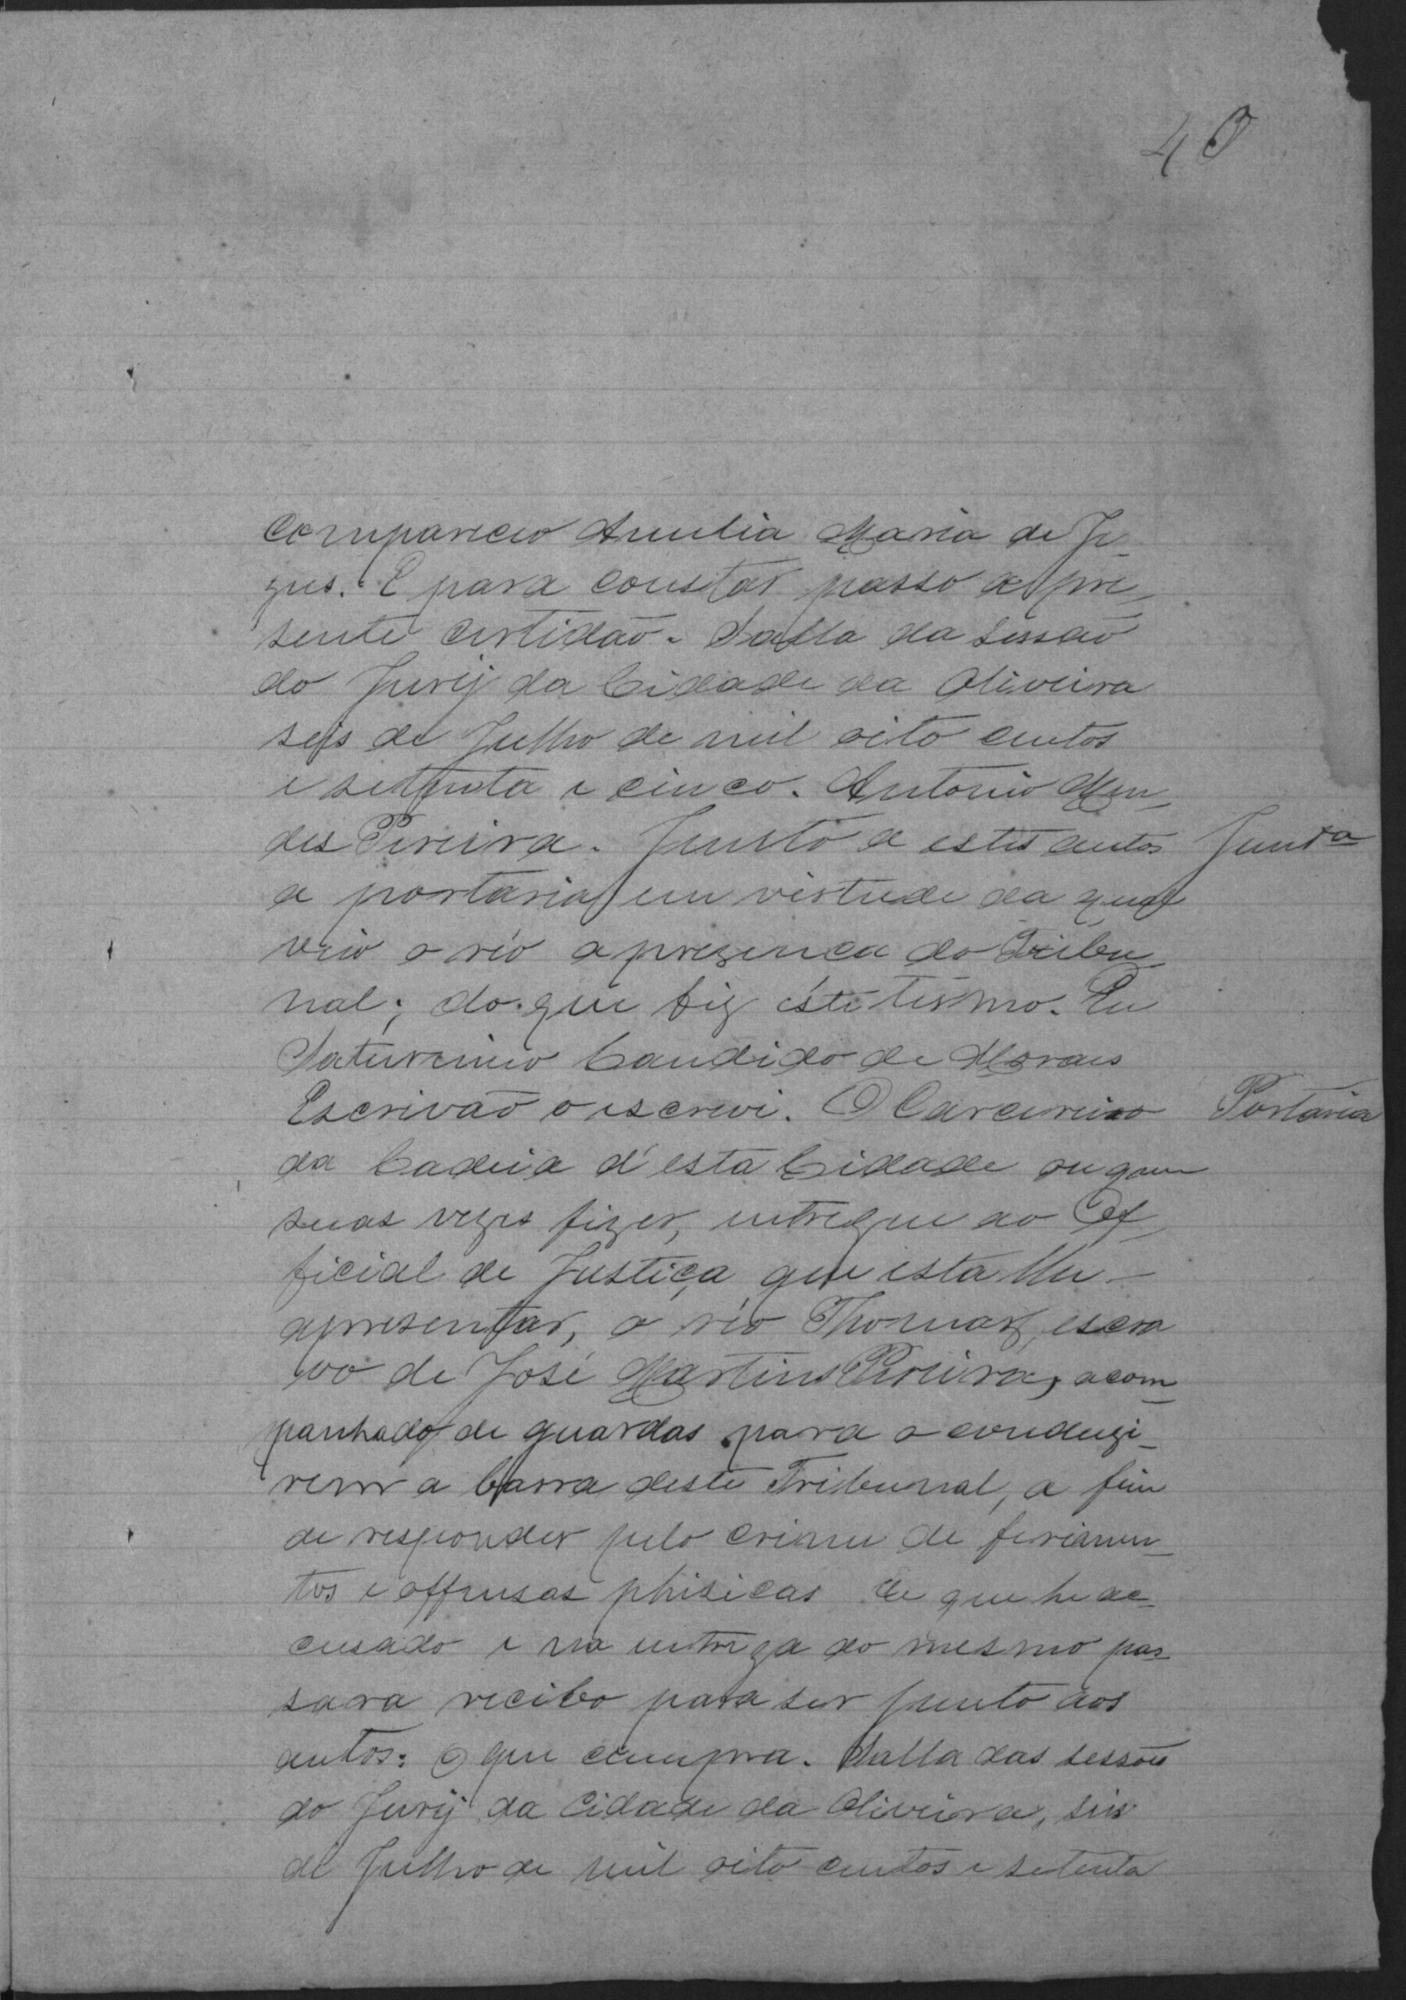 40
Compareceo Amelia Maria de Je-
zus. E para constar passo a pre-
sente certidão. Salla da sessão
do Jury da Cidade da Oliveira
seis de Julho de mil oito centos
e setenta e cinco. Antonio Men-
des Pereira. Junto a estes autos Junta
a portaria em virtude da qual
veio o réo a prezenca do Tribu-
nal; do que fiz éste termo. Eu
Saturnino Candido de Moraes
Escrivão o escrevi. O Carcereiro Portaria
da Cadeia d'esta Cidade ou quem
suas vezes fizer, entregue ao Of-
ficial de Justiça que esta lhe
apresentar, o réo Thomaz, escra
vo de José Martins Pereira, acom-
panhado de guardas para o conduzi-
rem a barra deste Tribunal, a fim
de responder pelo crime de ferimen-
tos e offensas phisicas de que he ac-
cusado e na entrega do mesmo pas-
sara recibo para ser junto aos
autos: O que cumpra. Salla das sessões
do Jury da Cidade da Oliveira, seis
de Julho de mil oito centos e setenta